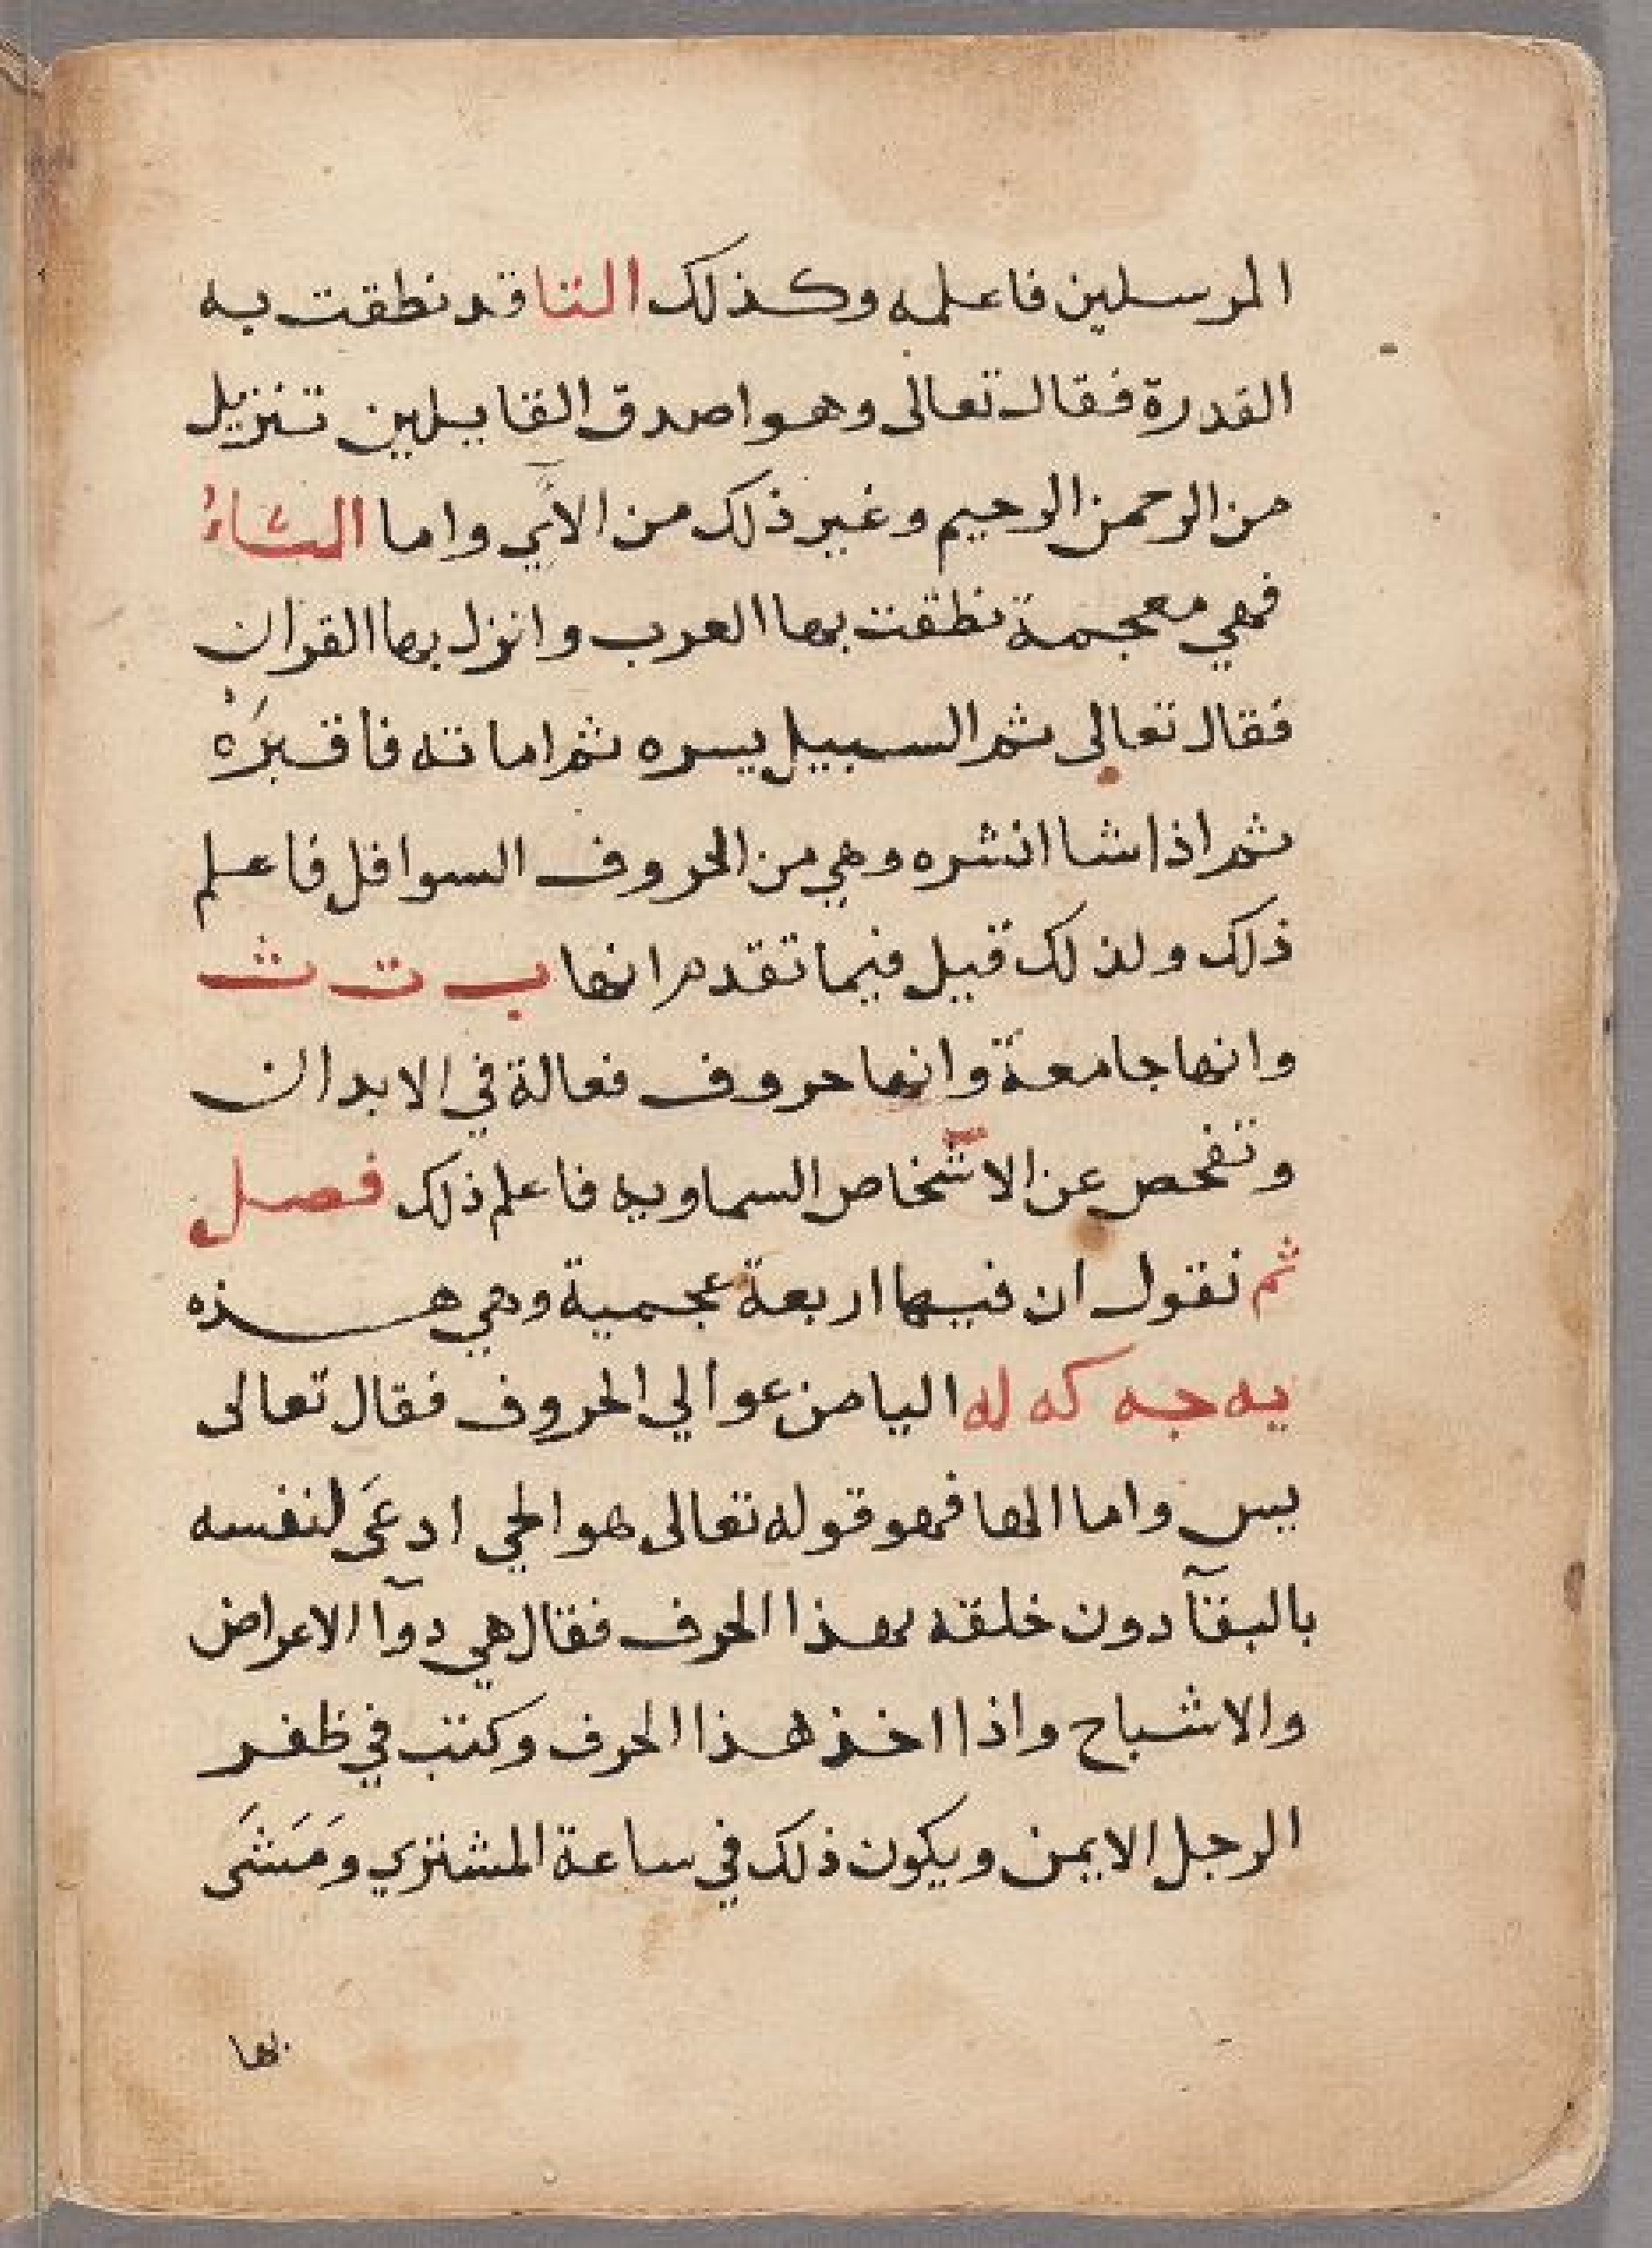 المرسلين فاعلمه وكذلك التا قد نطقت به
القدرة فقال تعالى وهو اصدق القايلين تنزيل
من الرحمن الرحيم وغير ذلك من الآي واما الثاء
فهي معجمة نطقت بها العرب وانزل بها القران
فقال تعالى ثم السبيل يسره ثم اماته فأقبرَهُ
ثم اذا شا انشره وهي من الحروف السوافل فاعلم
ذلك ولذلك قيل فيما تقدم انها ب ت ث
وانها جامعة وانها حروف فعالة في الابدان
وتفحص عن الاشخاص السماويه فاعلم ذلك فصل
ثم نقول ان فيها اربعة عجمية وهي هذه
يه جه كه له اليا من عوالي الحروف فقال تعالى
يس واما الها فهو قوله تعالى هو الحي ادعَى لنفسه
بالبقآ دون خلقه بهذا الحرف فقال هي دوآ الاعراض
والاشباح واذا اخذ هذا الحرف وكتب في ظفر
الرجل الايمن ويكون ذلك في ساعة المشتري ومَشَى
بها